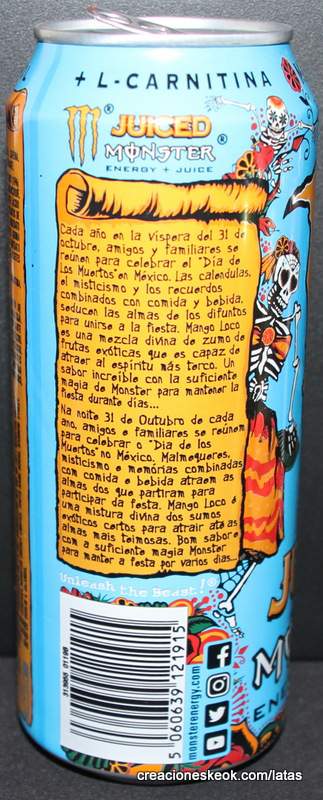 + L-CARNITINA
JUICED
MONSTER
ENERGY + JUICE
Cada año en la víspera del 31 de
octubre, amigos y familiares se
reúnen para celebrar el "Día de
Los Muertos" en México. Las calendulas,
el misticismo y los recuerdos
combinados con comida y bebida,
seducen las almas de los difuntos
para unirse a la fiesta. Mango Loco
es una mezcla divina de zumo de
frutas exóticas que es capaz de
atraer al espíritu más terco. Un
sabor increíble con la suficiente
magia de Monster para mantener la
fiesta durante días...
Na noite 31 de Outubro de cada
ano, amigos e familiares se reúnem
para celebrar o "Dia de los
Muertos" no México. Malmequeres,
misticismo e memórias combinadas
com comida e bebida atraem as
almas dos que partiram para
participar da festa. Mango Loco é
uma mistura divina dos sumos
exóticos certos para atrair até as
almas mais teimosas. Bom sabor e
com a suficiente magia Monster
para manter a festa por varios dias...
Unleash the Beast!®
5 060639 121915
monsterenergy.com
creacioneskeok.com/latas